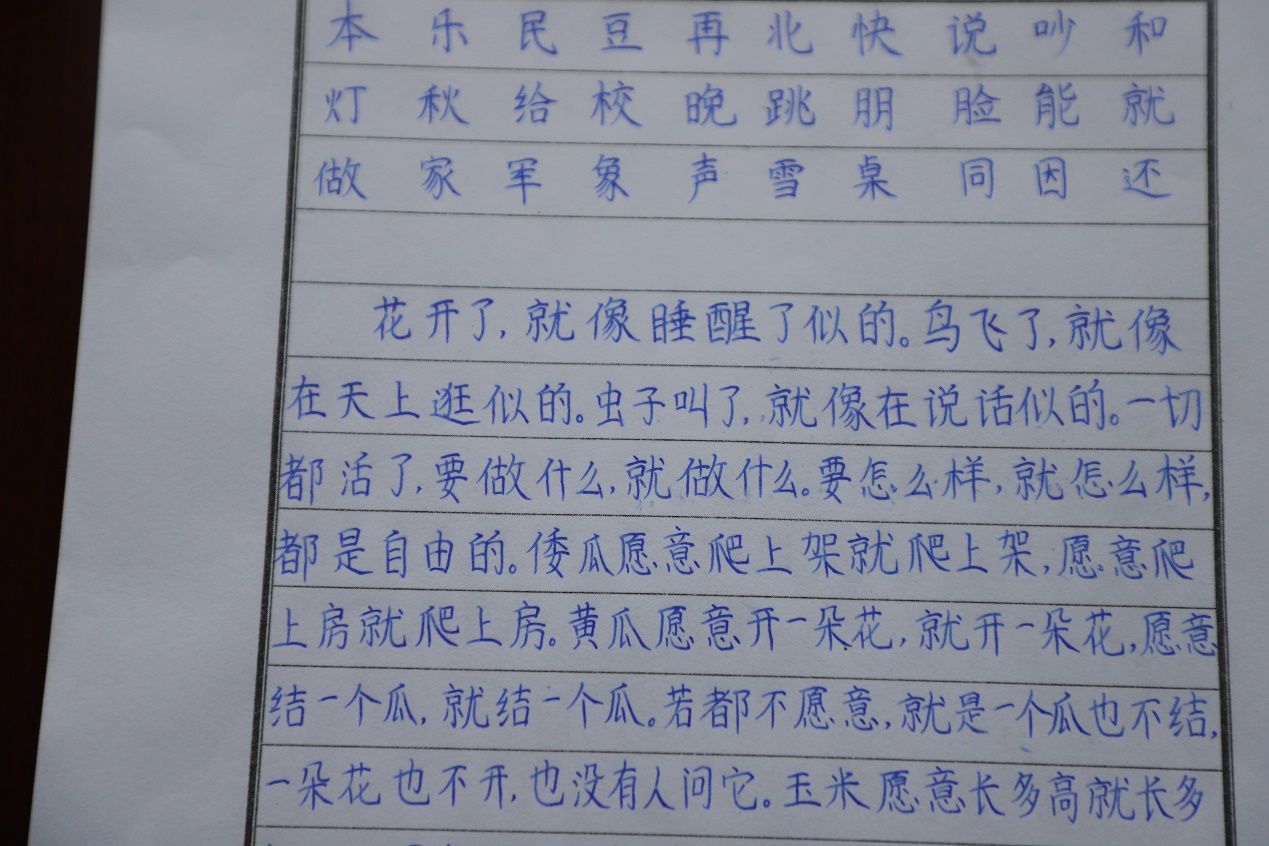 本 乐 民 豆 再 北 快 说 吵 和
灯 秋 给 校 晚 跳 朋 脸 能 就
做 家 军 象 声 雪 桌 同 因 还
花开了,就像睡醒了似的。鸟飞了,就像
在天上逛似的。虫子叫了,就像在说话似的。一切
都活了,要做什么,就做什么。要怎么样,就怎么样,
都是自由的。倭瓜愿意爬上架就爬上架,愿意爬
上房就爬上房。黄瓜愿意开一朵花,就开一朵花,愿意
结一个瓜,就结一个瓜。若都不愿意,就是一个瓜也不结,
一朵花也不开,也没有人问它。玉米愿意长多高就长多